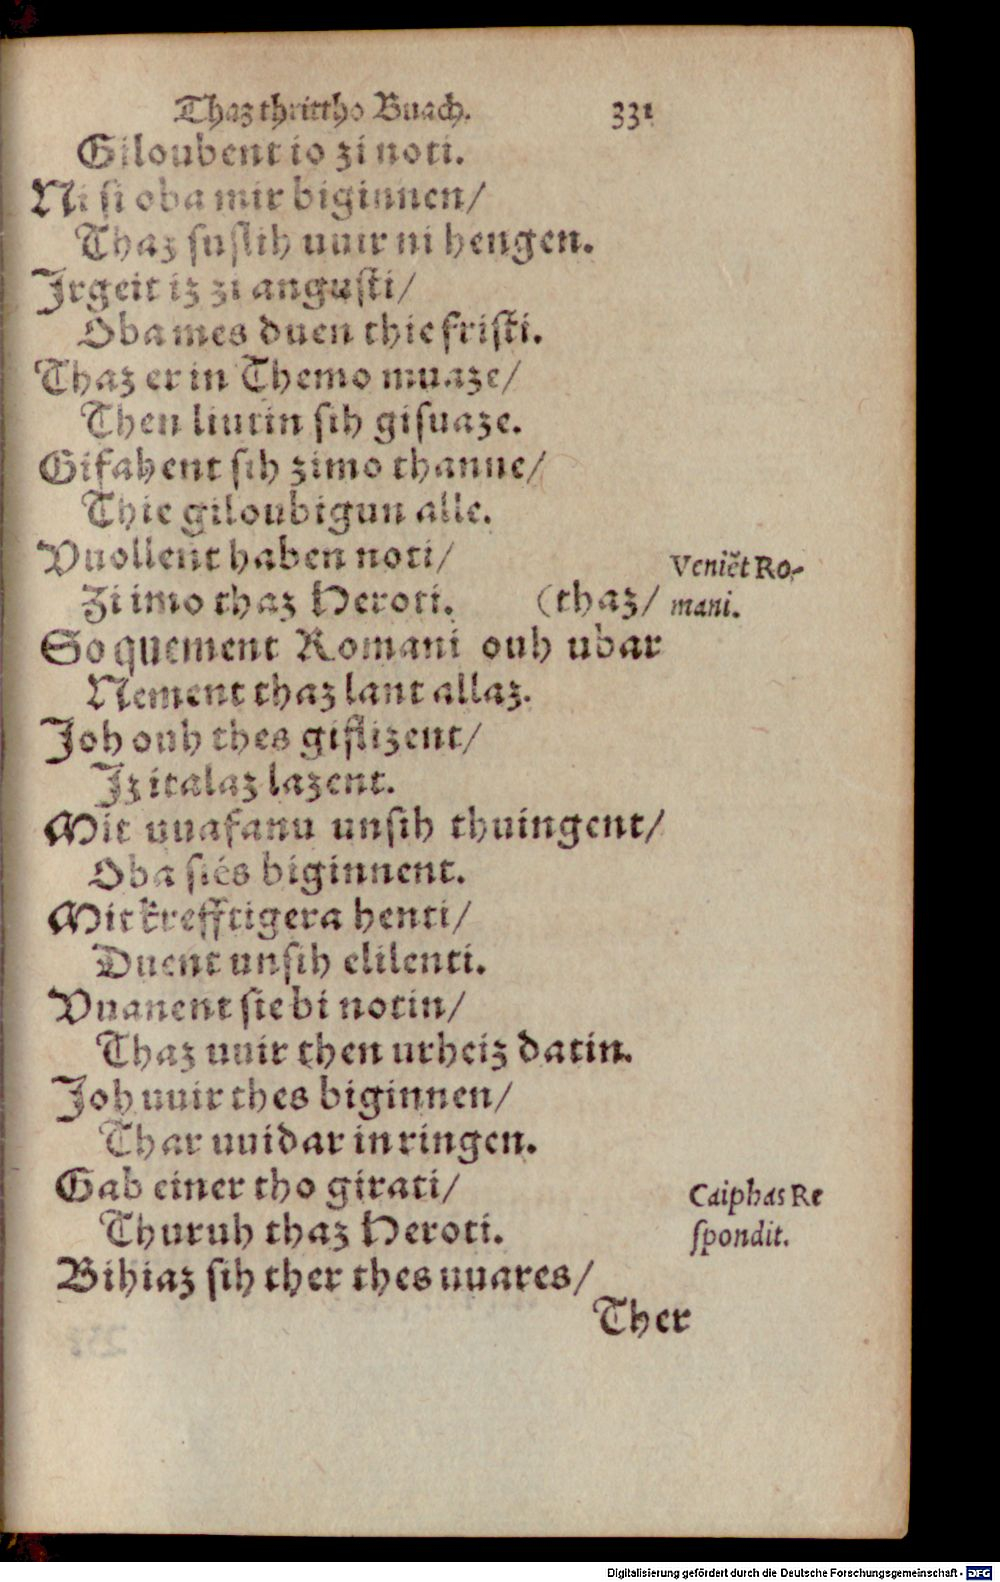 Thaz thrittho Buach. 331
Giloubent io zi noti.
Ni si oba mir biginnen/
Thaz suslih uuir ni hengen.
Jrgeit iz zi angusti/
Oba mes duen thie fristi.
Thaz er in Themo muaze/
Then liutin sih gisuaze.
Gifahent sih zimo thanne/
Thie giloubigun alle.
Vuollent haben noti/
Zi imo thaz Heroti. (thaz/
Veniẽt Ro-
mani.
So quement Romani ouh ubar
Nement thaz lant allaz.
Joh ouh thes giflizent/
Jz italaz lazent.
Mit uuafanu unsih thuingent/
Oba siés biginnent.
Mit krefftigera henti/
Duent unsih elilenti.
Vuanent sie bi notin/
Thaz uuir then urheiz datin.
Joh uuir thes biginnen/
Thar uuidar in ringen.
Gab einer tho girati/
Thuruh thaz Heroti.
Caiphas Re
spondit.
Bihiaz sih ther thes uuares/
Ther
Digitalisierung gefördert durch die Deutsche Forschungsgemeinschaft - DFG